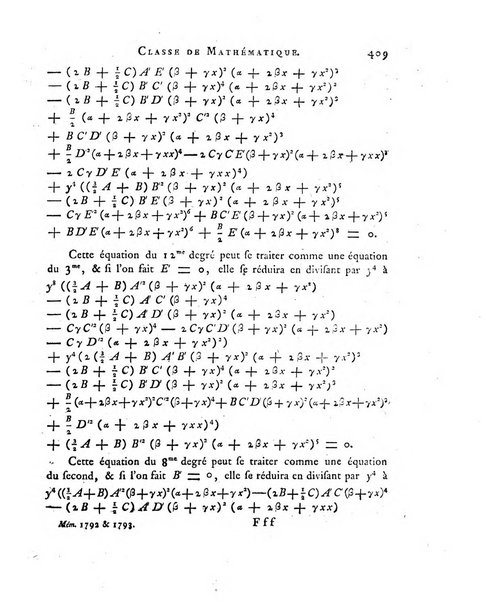 CLASSE DE MATHÉMATIQUE. 409
— (2 B + ½ C) A' E' (β + γx)² (α + 2βx + γx²)²
— (2 B + ½ C) B' C' (β + γx)⁴ (α + 2βx + γx²)
— (2 B + ½ C) B' D' (β + γx)² (α + 2βx + γx²)²
+ B/2 (α + 2βx + γx²)² C'² (β + γx)⁴
+ B C' D' (β + γx)² (α + 2βx + γx²)³
+ B/2 D'² (α + 2βx + γxx)⁴ — 2 C γ C' E' (β + γx)² (α + 2βx + γxx)³
— 2 C γ D' E' (α + 2βx + γxx)⁴)
+ y⁴ ((3/2 A + B) B'² (β + γx)² (α + 2βx + γx²)³
— (2 B + ½ C) B' E' (β + γx)² (α + 2βx + γx²)³
— C γ E'² (α + 2βx + γx²)⁵ + B C' E' (β + γx)² (α + 2βx + γx²)⁴
+ B D' E' (α + 2βx + γx²)⁵ + B/2 E' (α + 2βx + γx²)⁶ = 0.
Cette équation du 12me degré peut se traiter comme une équation
du 3me, & si l'on fait E' = 0, elle se réduira en divisant par y⁴ à
y⁸ ((3/2 A + B) A'² (β + γx)² (α + 2βx + γx²)
— (2 B + ½ C) A' C' (β + γx)⁴
— (2 B + ½ C) A' D' (β + γx)² (α + 2βx + γx²)
— C γ C'² (β + γx)⁴ — 2 C γ C' D' (β + γx)² (α + 2βx + γx²)
— C γ D'² (α + 2βx + γx²)²)
+ y⁴ (2 (3/2 A + B) A' B' (β + γx)² (α + 2βx + γx²)²
— (2 B + ½ C) B' C' (β + γx)⁴ (α + 2βx + γx²)
— (2 B + ½ C) B' D' (β + γx)² (α + 2βx + γx²)²
+ B/2 (α + 2βx + γx²)² C'² (β + γx)⁴ + B C' D' (β + γx)² (α + 2βx + γx²)³
+ B/2 D'² (α + 2βx + γxx)⁴)
+ (3/2 A + B) B'² (β + γx)² (α + 2βx + γx²)³ = 0.
Cette équation du 8me degré peut se traiter comme une équation
du second, & si l'on fait B' = 0, elle se réduira en divisant par y⁴ à
y⁴ ((3/2 A + B) A'² (β + γx)² (α + 2βx + γx²) — (2B + ½ C) A' C' (β + γx)⁴
— (2 B + ½ C) A' D' (β + γx)² (α + 2βx + γx²)
Mém. 1792 & 1793. F f f